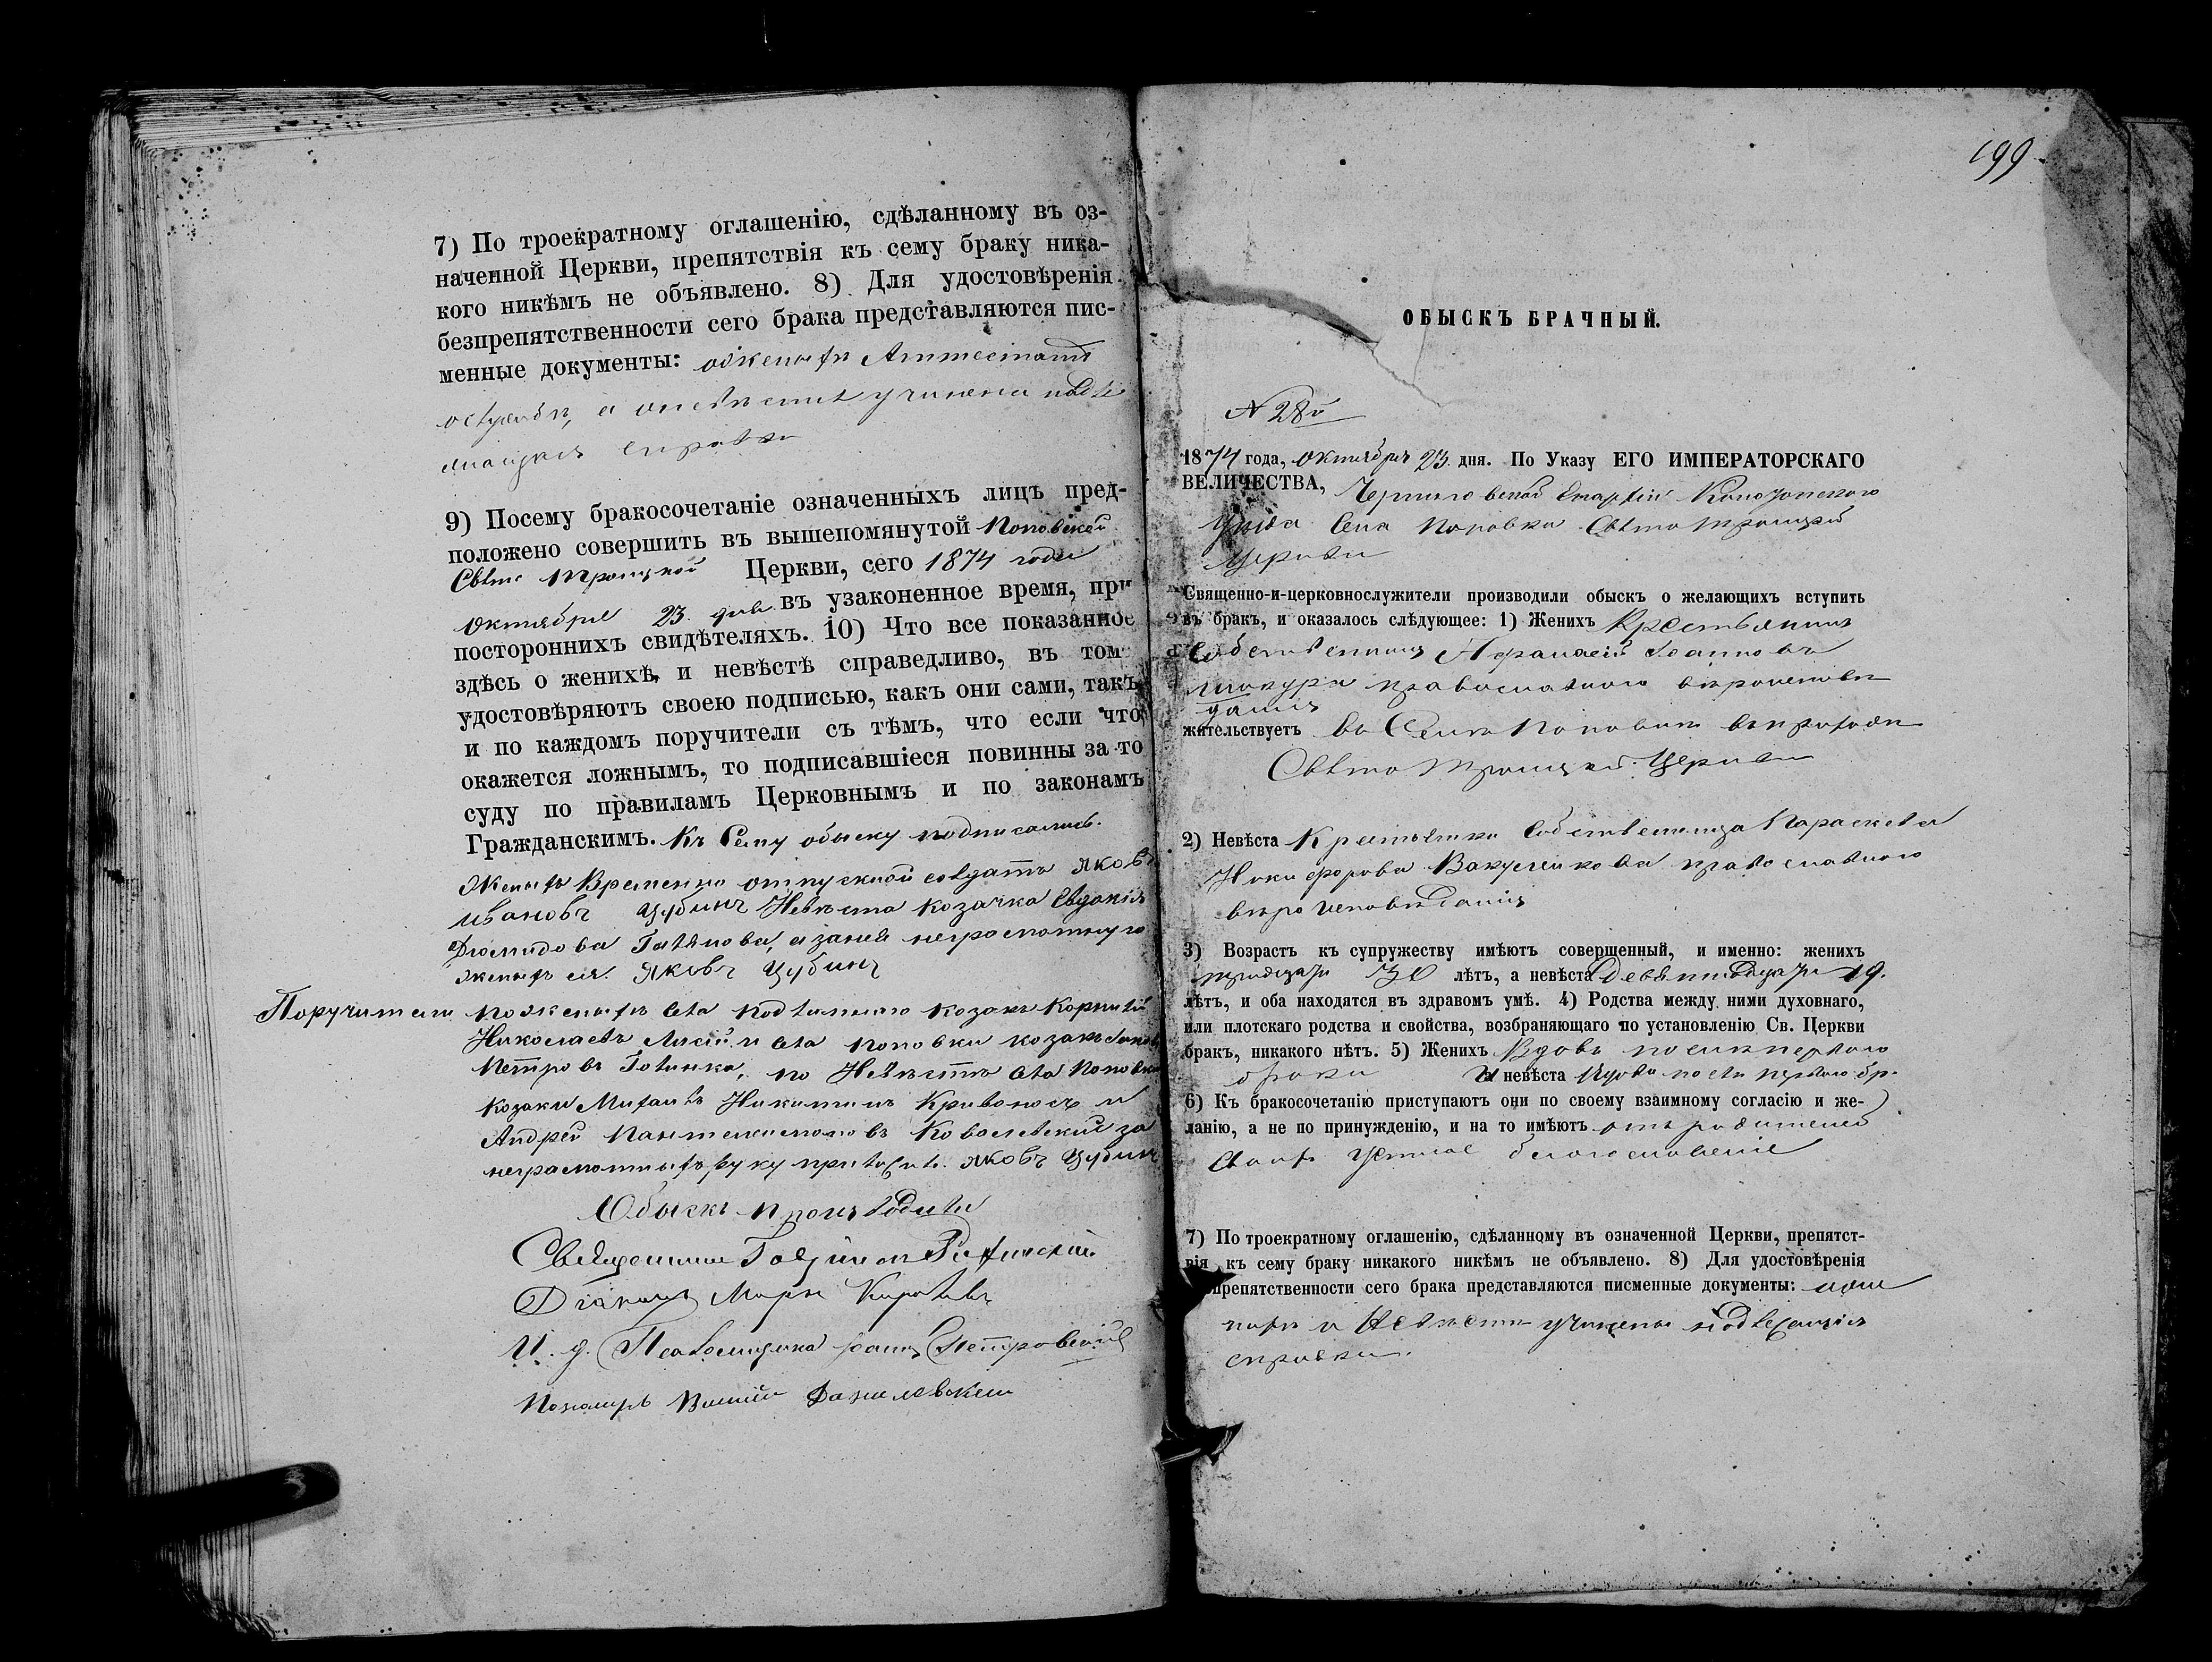 7) По троекратному оглашенію, сдѣланному въ оз-
наченной Церкви, препятствія къ сему браку ника-
кого никѣмъ не объявлено. 8) Для удостовѣренія
безпрепятственности сего брака представляются пис-
менные документы: о женихѣ Аттестатъ
а о невѣстѣ учинена надле
жащая справка
9) Посему бракосочетаніе означенныхъ лицъ пред-
положено совершить въ вышепомянутой Поповской
Свято Троицкой Церкви, сего 1874 года
октября 23 дня въ узаконенное время, при
постороннихъ свидѣтеляхъ. 10) Что все показанное
здѣсь о женихѣ и невѣстѣ справедливо, въ том
удостовѣряютъ своею подписью, какъ они сами, такъ
и по каждомъ поручители съ тѣмъ, что если что
окажется ложнымъ, то подписавшіеся повинны за то
суду по правиламъ Церковнымъ и по законамъ
Гражданскимъ. Къ Сему обыску подписались.
Женихъ Временно отпускной солдатъ Яковъ
Ивановъ Цубинъ Невѣста козачка Евдокія
Діомидова а за нея неграмотную
женихъ ея. Яковъ Цубинъ
Поручители по женихѣ козакъ Корнилій
Николаевъ и села Поповки козакъ
Петровъ по Невѣстѣ села Поповки
козаки Михаилъ Никитинъ Кривоносъ и
Андрей Пантелеимоновъ Ковалевскій за
неграмотныхъ руку приложилъ Яковъ Цубинъ
Обыскъ производили
Священникъ
Діаконъ Маркъ
И. д. Псаломщика Іоаннъ Петровскій
Пономарь
199
ОБЫСКЪ БРАЧНЫЙ.
№ 28й
1874 года, октября 23 дня. По Указу ЕГО ИМПЕРАТОРСКАГО
ВЕЛИЧЕСТВА, Черниговской Епархіи Конотопского
Уѣзда Села Поповки Свято Троицкой
Церкви
Священно-и-церковнослужители производили обыскъ о желающихъ вступить
въ бракъ, и оказалось слѣдующее: 1) Женихъ Крестьянинъ
Собственникъ Афанасій Іоанновъ
православного вѣроисповѣ
данія
жительствуетъ въ Селѣ Поповкѣ въ приходѣ
Свято Троицкой Церкви
2) Невѣста Крестьянка Собственница Параскева
Никифорова Вакуленкова православного
вѣроисповѣданія
3) Возрастъ къ супружеству имѣютъ совершенный, и именно: женихъ
тридцать 30 лѣтъ, а невѣста Девятнадцать 19.
лѣтъ, и оба находятся въ здравомъ умѣ. 4) Родства между ними духовнаго,
или плотскаго родства и свойства, возбраняющаго по установленію Св. Церкви
бракъ, никакого нѣтъ. 5) Женихъ Вдовъ послѣ первого
брака и невѣста Вдова послѣ первого бр.
6) Къ бракосочетанію приступаютъ они по своему взаимному согласію и же-
ланію, а не по принужденію, и на то имѣютъ отъ родителей
своихъ устное благословеніе
7) По троекратному оглашенію, сдѣланному въ означенной Церкви, препятст-
вія къ сему браку никакого никѣмъ не объявлено. 8) Для удостовѣренія
препятственности сего брака представляются писменные документы: о же
нихѣ и Невѣстѣ учинены надлежащія
справки.